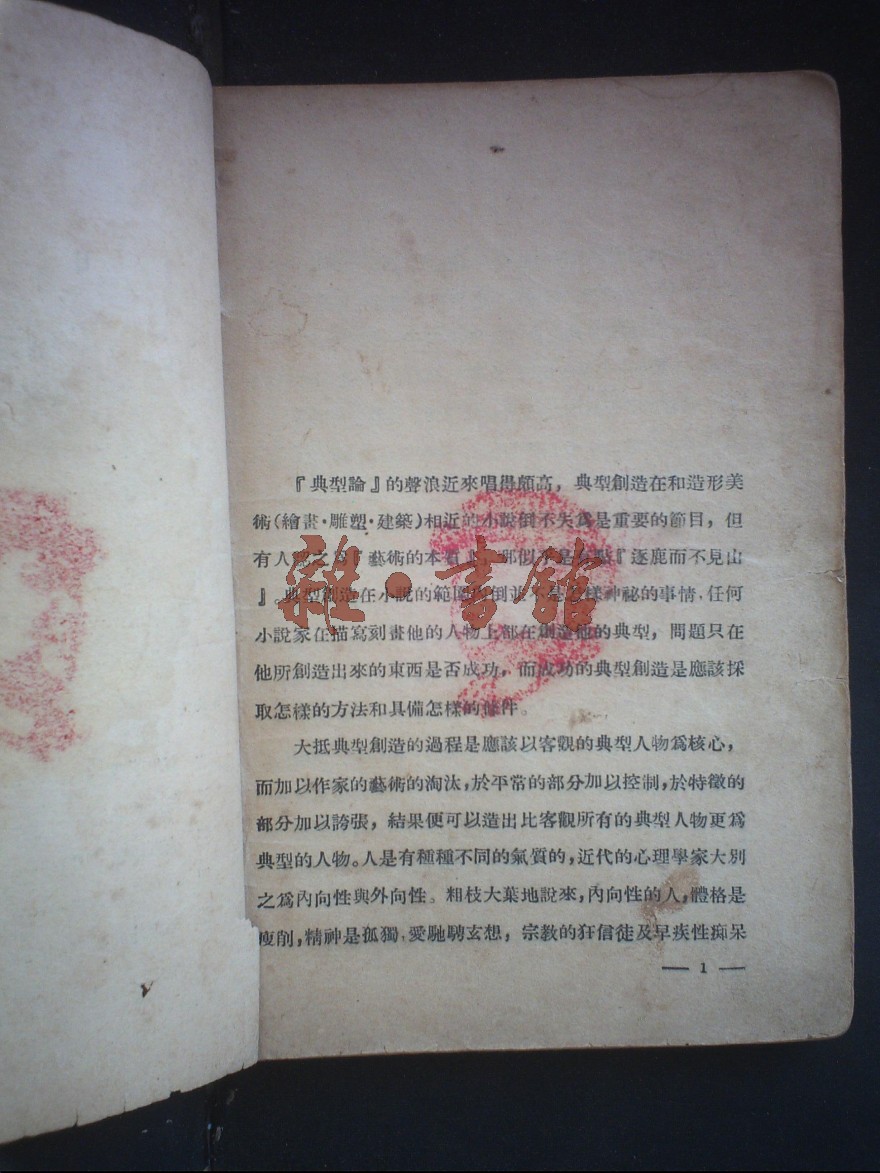 『典型論』的聲浪近來唱得頗高，典型創造在和造形美
術（繪畫·雕塑·建築）相近的小說倒不失爲是重要的節目，但
有人 之爲『藝術的本 』，那似乎是有點『逐鹿而不見山
』。典型創造在小說的範圍內倒並不是怎樣神祕的事情，任何
小說家在描寫刻畫他的人物上都在創造他的典型，問題只在
他所創造出來的東西是否成功，而成功的典型創造是應該採
取怎樣的方法和具備怎樣的條件。
大抵典型創造的過程是應該以客觀的典型人物爲核心，
而加以作家的藝術的淘汰，於平常的部分加以控制，於特徵的
部分加以誇張，結果便可以造出比客觀所有的典型人物更爲
典型的人物。人是有種種不同的氣質的，近代的心理學家大別
之爲內向性與外向性。粗枝大葉地說來，內向性的人，體格是
瘦削，精神是孤獨，愛馳騁玄想，宗教的狂信徒及早疾性痴呆
— 1 —
雜·書館